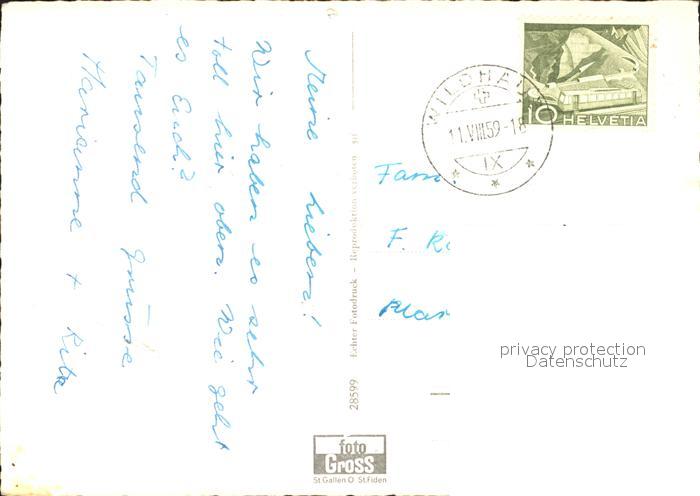 Meine Lieben!
Wir haben es sehr
toll hier oben. Wie geht
es Euch?
Tausend Grüsse
Marianne + Rita
28599 Echter Fotodruck - Reproduktion verboten
foto
GROSS
St.Gallen O St.Fiden
WILDHAUS
11.VIII.59-18
IX
10 HELVETIA
Fam.
F.
privacy protection
Datenschutz